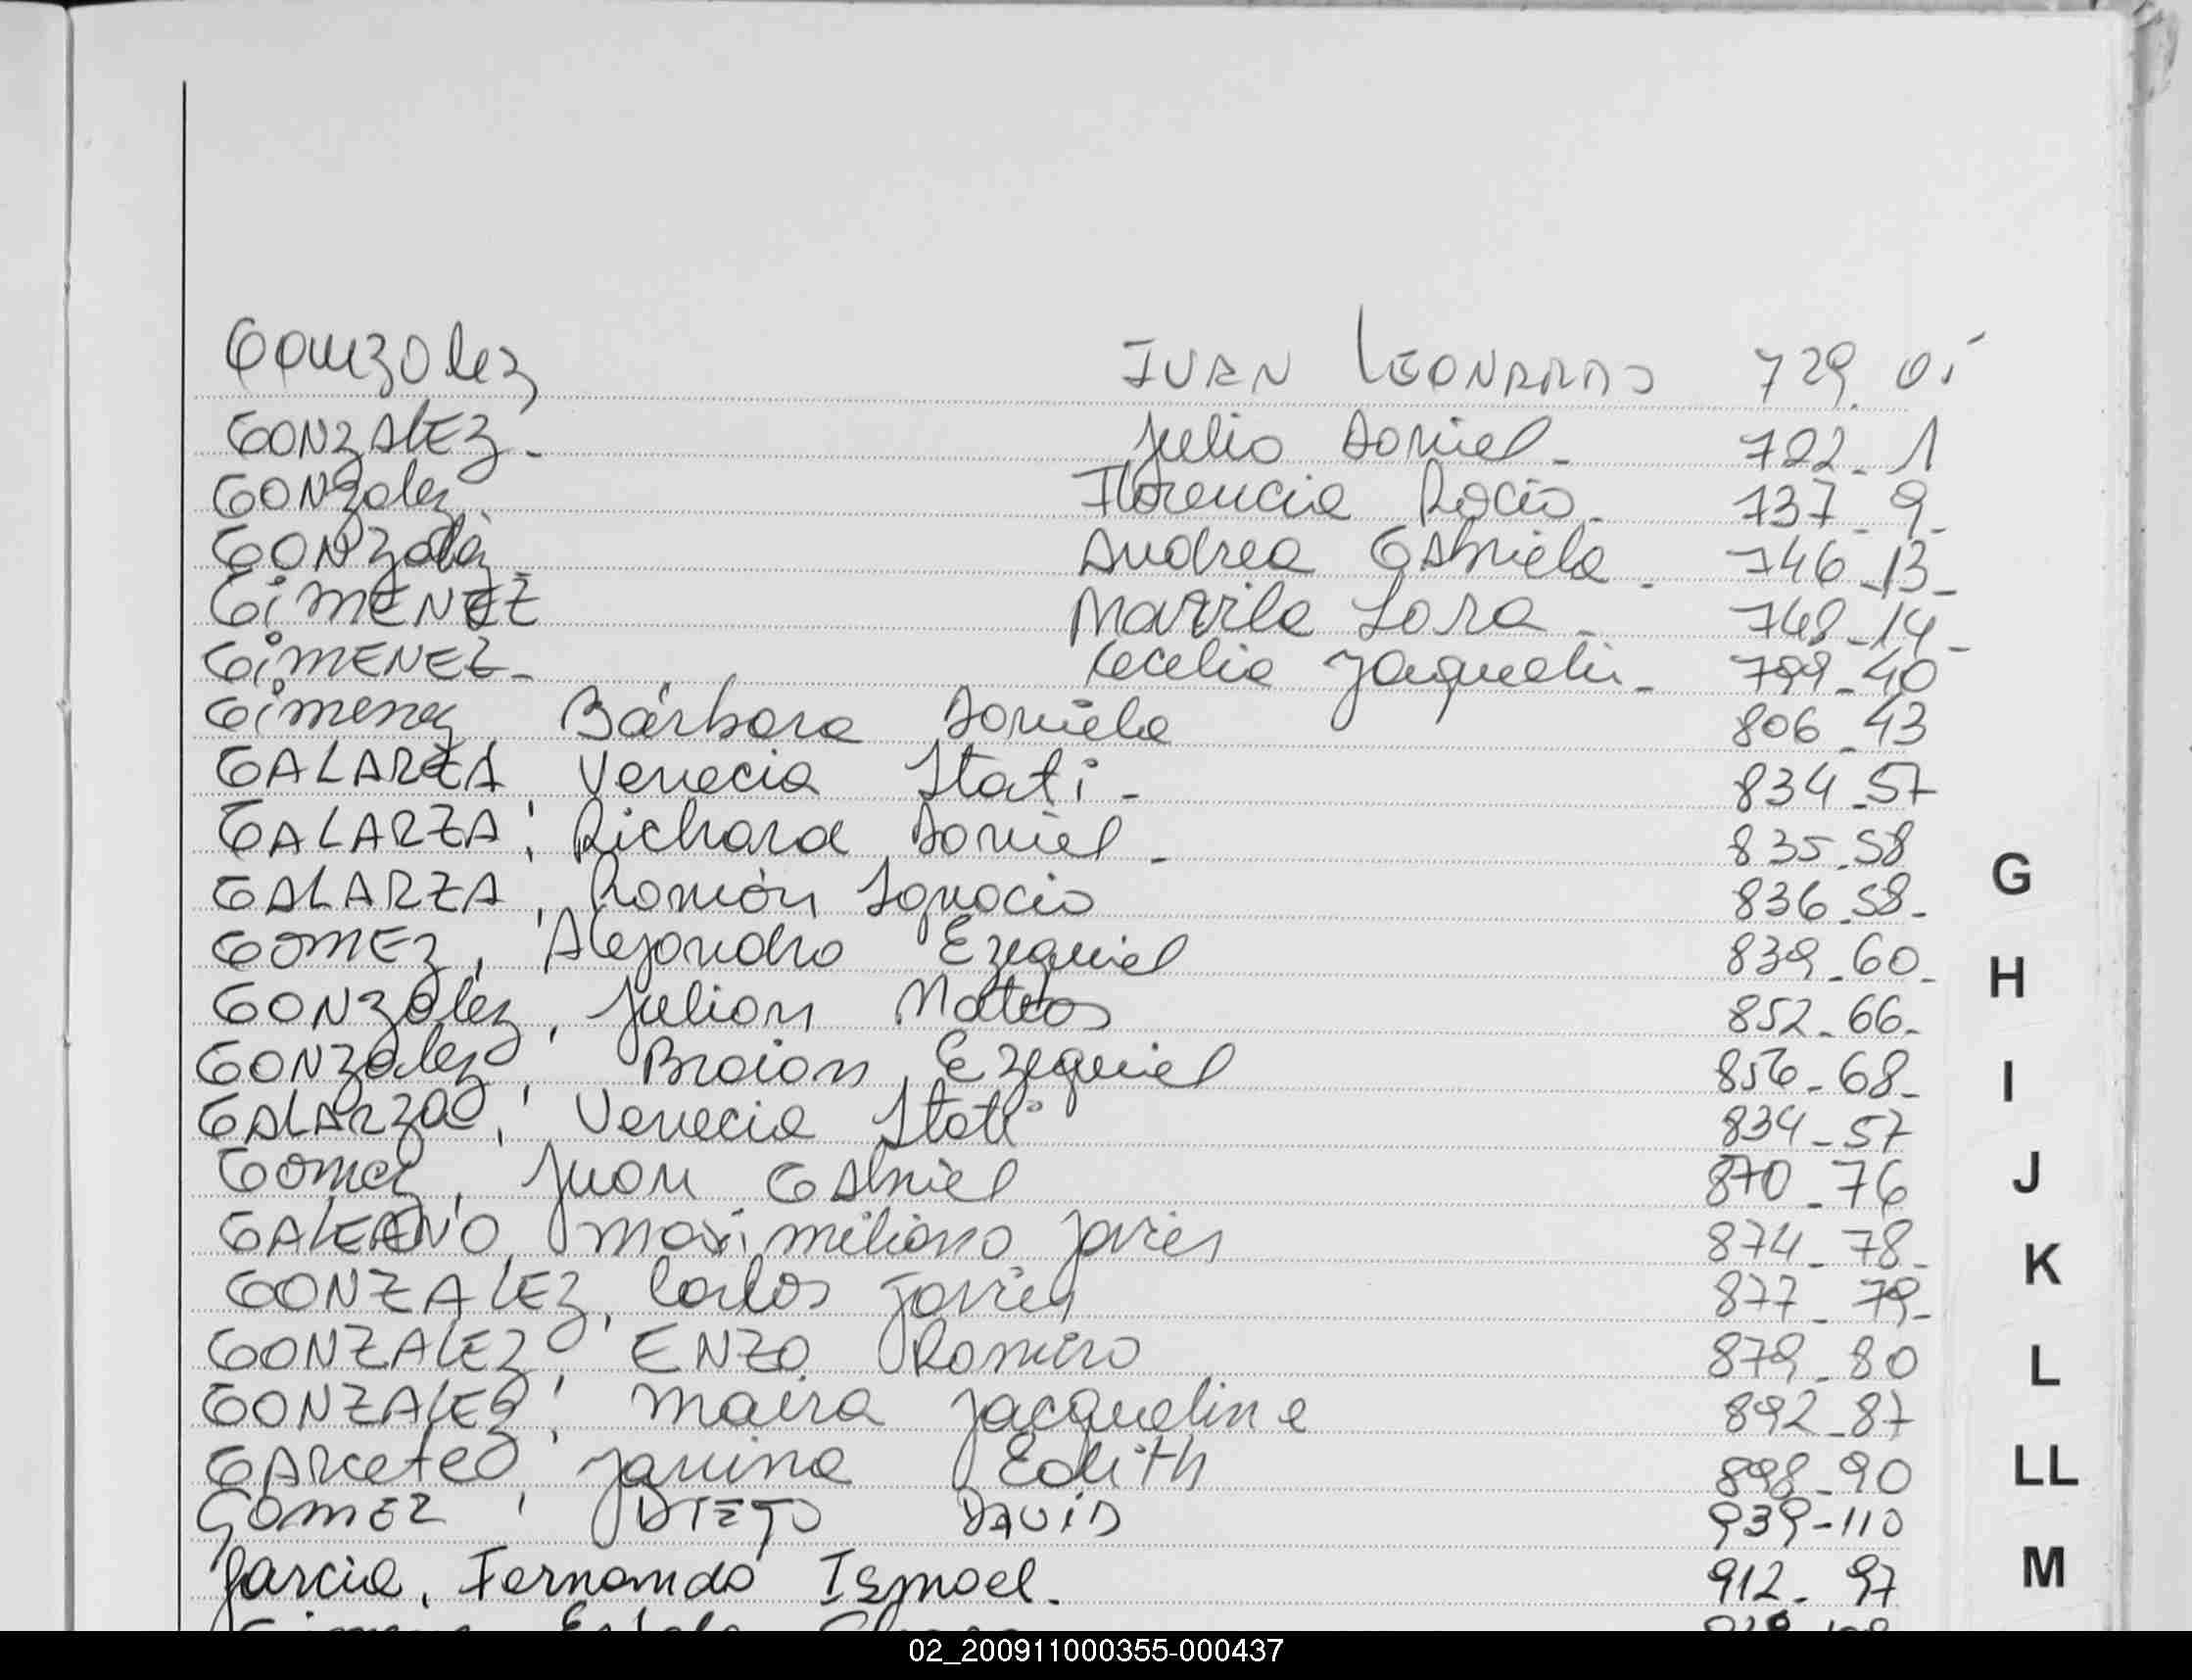 Gonzalez JUAN LEONARDO 729. 01
GONZALEZ- Julio Daniel- 722-1
GONzalez. Florencia Rocio- 737-9-
GONzalez- Andrea Gabriela- 746-13-
GiMENEZ Marvila Sora- 748-14-
GiMENEZ- Cecelia Jaqueli- 799-40
Gimenez, Bárbara Daniela 806-43
GALARZA, Venecia Itati- 834-57
GALARZA, Richard Daniel- 835-58
GALARZA, Román Ignacio 836-58-
GOMEZ, Alejandro Ezequiel 839-60-
GONzalez, Julian Mateos 852-66-
GONzalez, Braian Ezequiel 856-68-
GALARza, Venecia Itati 834-57
Gomez, Juan Gabriel 870-76
GALEANO, Maximiliano Javier 874-78-
GONZALEZ, Carlos Javier 877-79-
GONZALEZ, ENZO Ramiro 879-80
GONZALEZ, Maira Jacqueline 892-87
GARcete, Janina Edith 898-90
GOMEZ, DIEGO DAVID 939-110
Garcia, Fernando Ismael. 912-97
G
H
I
J
K
L
LL
M
02_200911000355-000437